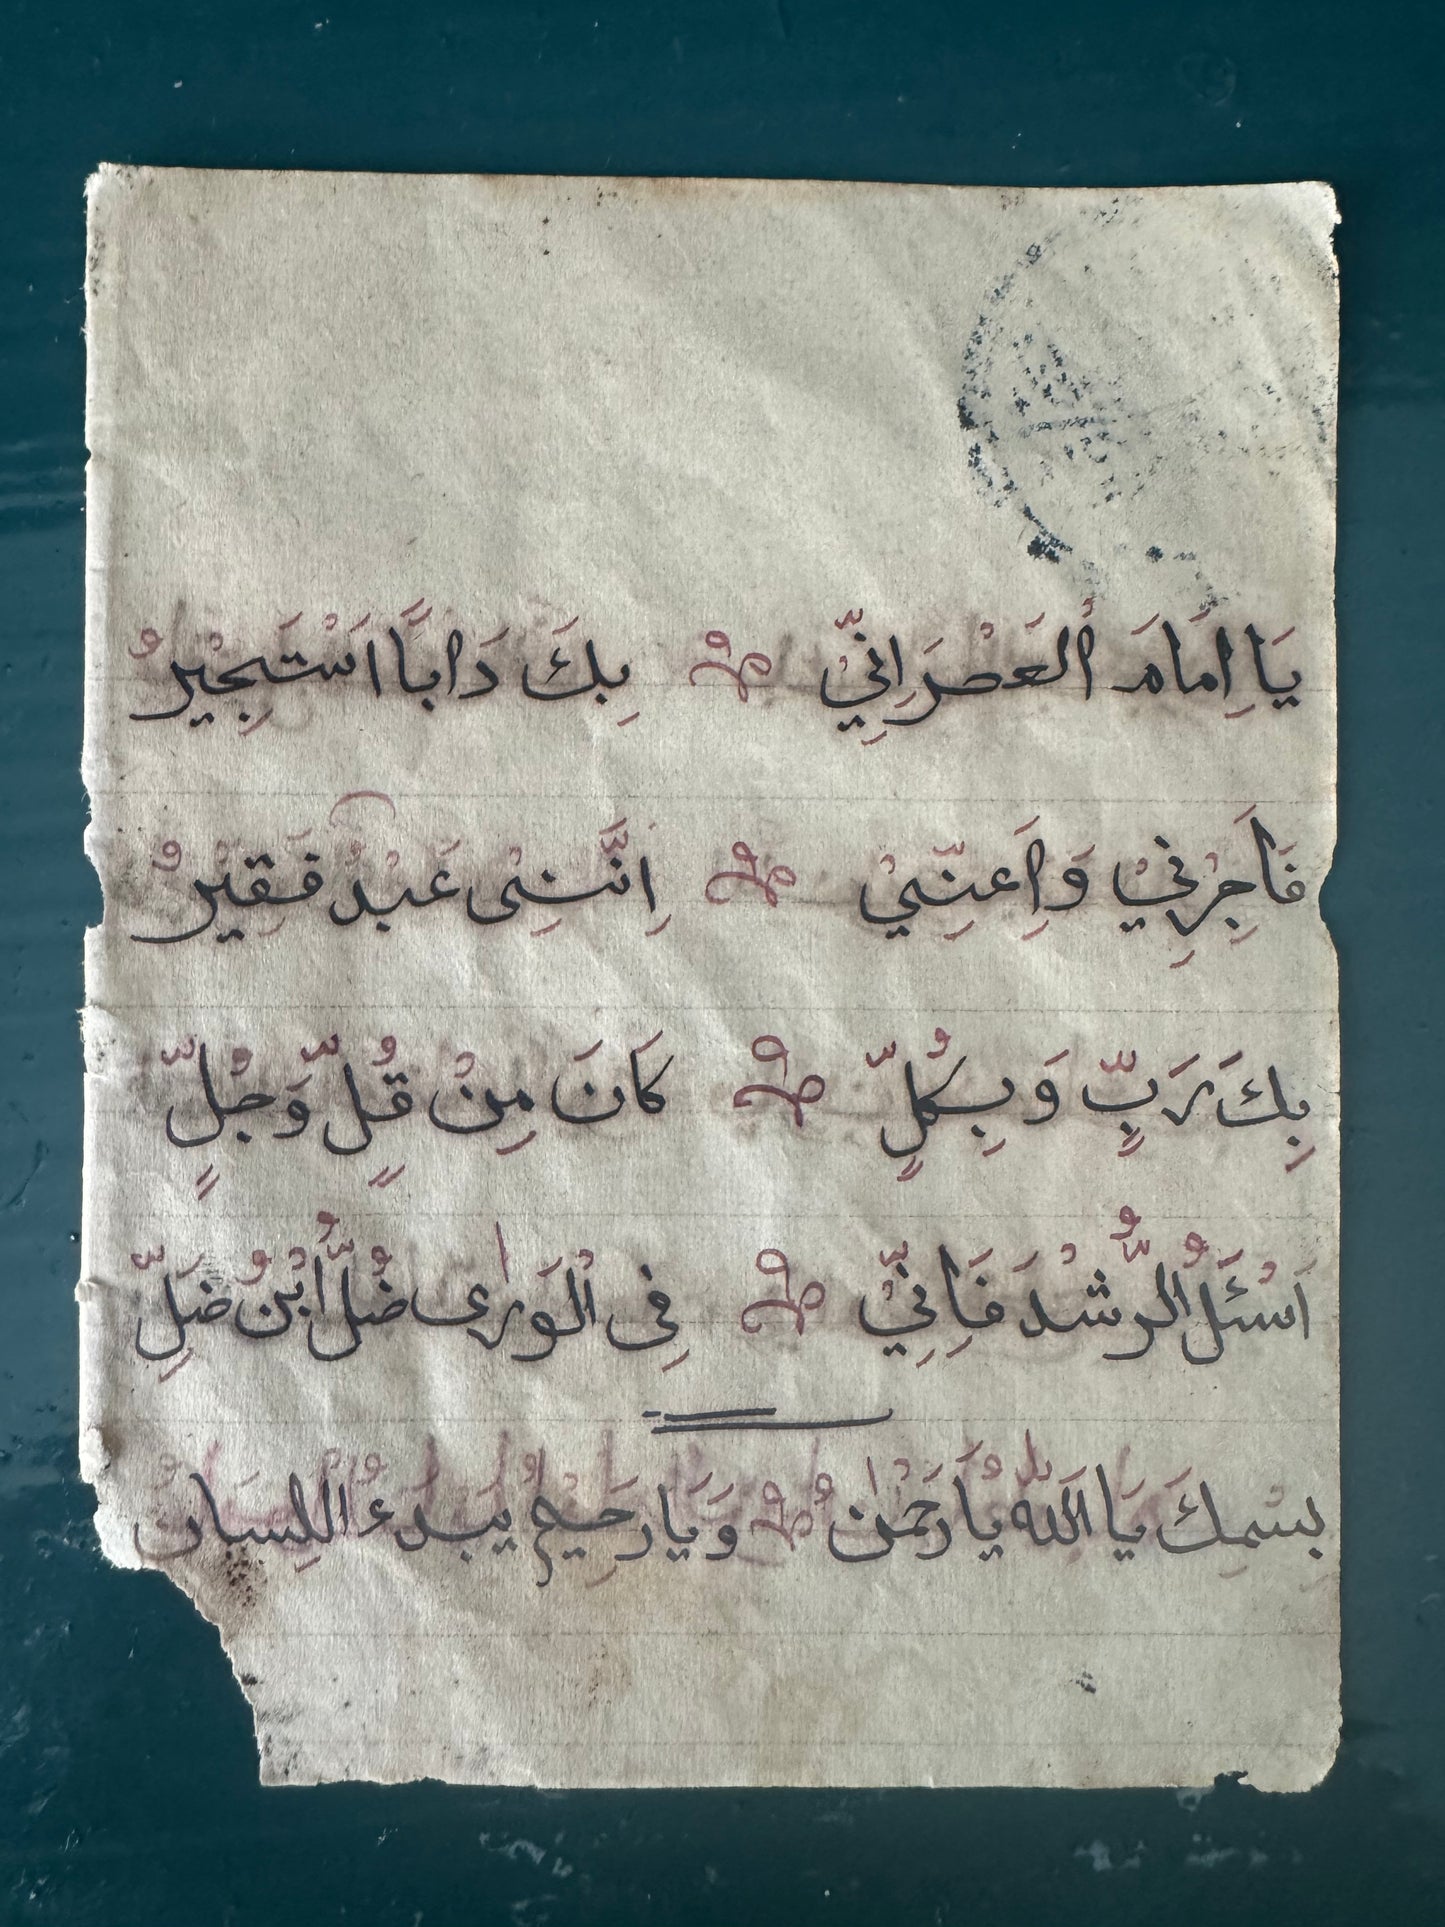 يَا اِمَامَ الْعَصْرِ اِنِّيْ بِكَ دَابًا اَسْتَجِيْرُ
فَاَجِرْنِيْ وَاَعِنِّيْ اِنَّنِىْ عَبْدٌ فَقِيْرُ
بِكَ رَبٍّ وَبِكُلٍّ كَانَ مِنْ قُلٍّ وَجُلٍّ
اَسْئَلُ الرُّشْدَ فَاِنِّيْ فِى الْوَرٰى ضُلُّ ابْنُ ضَلِّ
بِسْمِكَ يَا اَللّٰهُ يَا رَحْمٰنُ وَيَا رَحِيْمُ يَبْدَءُ اللِّسَانُ